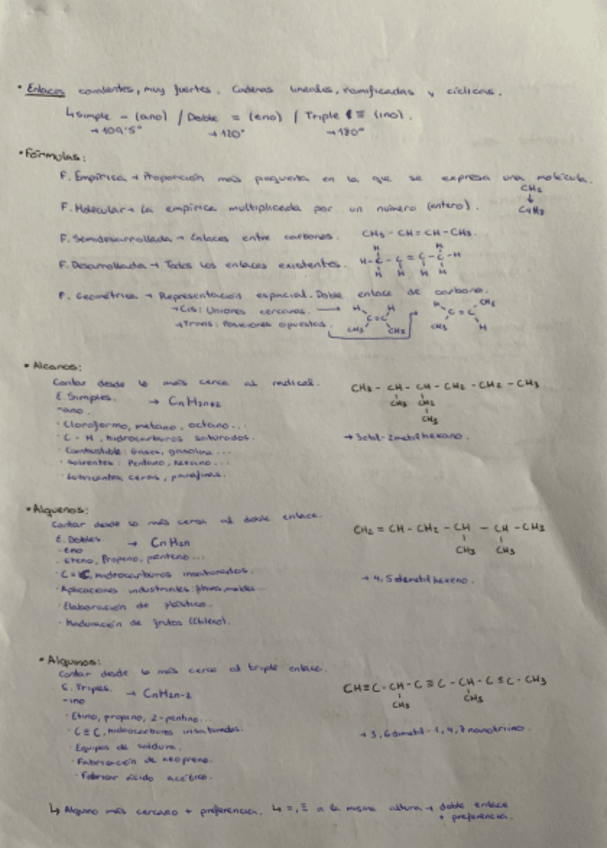 • Enlaces covalentes, muy fuertes. Cadenas lineales, ramificadas y cíclicas.
↳ Simple - (ano) / Doble = (eno) / Triple ≡ (ino).
→ 109'5° → 120° → 180°
• Fórmulas:
F. Empírica → Proporción más pequeña en la que se expresa una molécula.
CH2
↓
F. Molecular → La empírica multiplicada por un número (entero). C4H8
F. Semidesarrollada → Enlaces entre carbonos. CH3 - CH = CH - CH3.
F. Desarrollada → Todos los enlaces existentes.
H H
H - C - C = C - C - H
H H H H
F. Geométrica → Representación espacial. Doble enlace de carbono.
→ Cis: Uniones cercanas. →
→ Trans: Posiciones opuestas.
H H
C = C
CH3 CH3
H CH3
C = C
CH3 H
• Alcanos:
Contar desde lo más cerca al radical.
E. Simples. → CnH2n+2
-ano.
· Cloroformo, metano, octano...
· C - H, hidrocarburos saturados.
· Combustible: Gases, gasolina...
· Solventes: Pentano, hexano...
· Lubricantes, ceras, parafinas.
CH3 - CH - CH - CH2 - CH2 - CH3
CH3 CH2
CH3
→ 3etil-2metilhexano.
• Alquenos:
Contar desde lo más cerca al doble enlace.
E. Dobles → CnH2n
-eno
· Eteno, Propeno, penteno...
· C = C, hidrocarburos insaturados.
· Aplicaciones industriales:
· Elaboración de plástico.
· Maduración de frutos (Etileno).
CH2 = CH - CH2 - CH - CH - CH3
CH3 CH3
→ 4,5dimetilhexeno.
• Alquinos:
Contar desde lo más cerca al triple enlace.
E. Triples. → CnH2n-2
-ino
· Etino, propano, 2-pentino...
· C ≡ C, hidrocarburos insaturados.
· Equipos de soldura.
· Fabricación de neopreno.
· Fabricar ácido acético.
CH≡C-CH-C≡C-CH-C≡C-CH3
CH3 CH3
→ 3,6dimetil-1,4,7nonatriino.
↳ Alquino más cercano + preferencia. ↳ =, ≡ a la misma altura → doble enlace
+ preferencia.